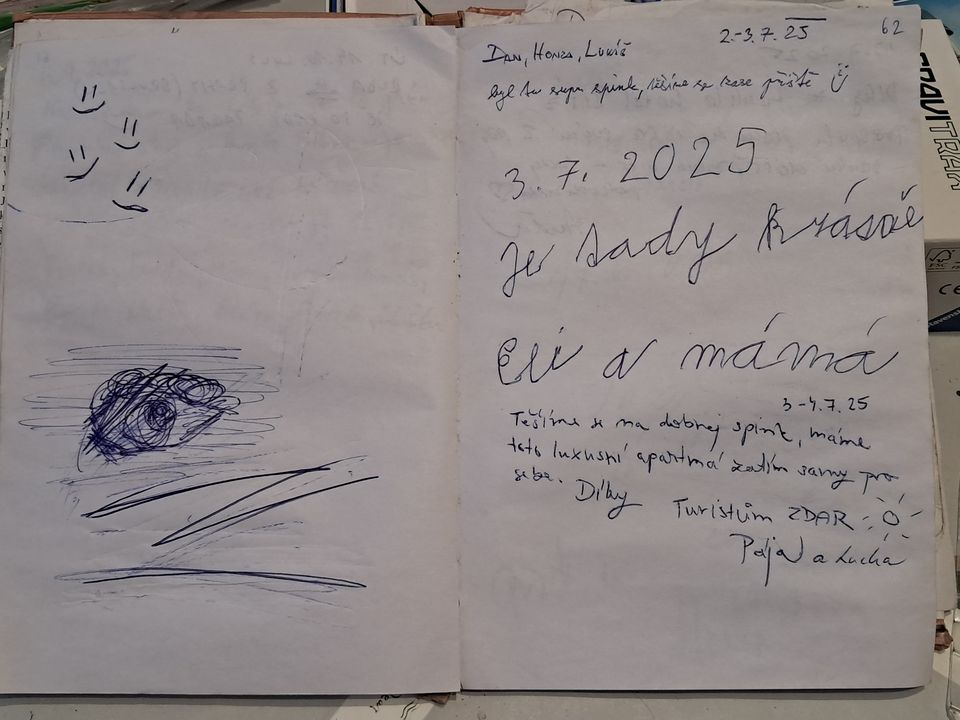 62
2.-3.7.25
DAN, HONZA, LUKÁŠ
byl tu super spink, těšíme se zase příště
3.7.2025
je tady krásně
Eli a máma
3-4.7.25
Těšíme se na dobrej spink, máme
toto luxusní apartmá zatím samy pro
sebe. Díky
Turistům ZDAR
Pája a Lucka
GRAVITRAX
CE